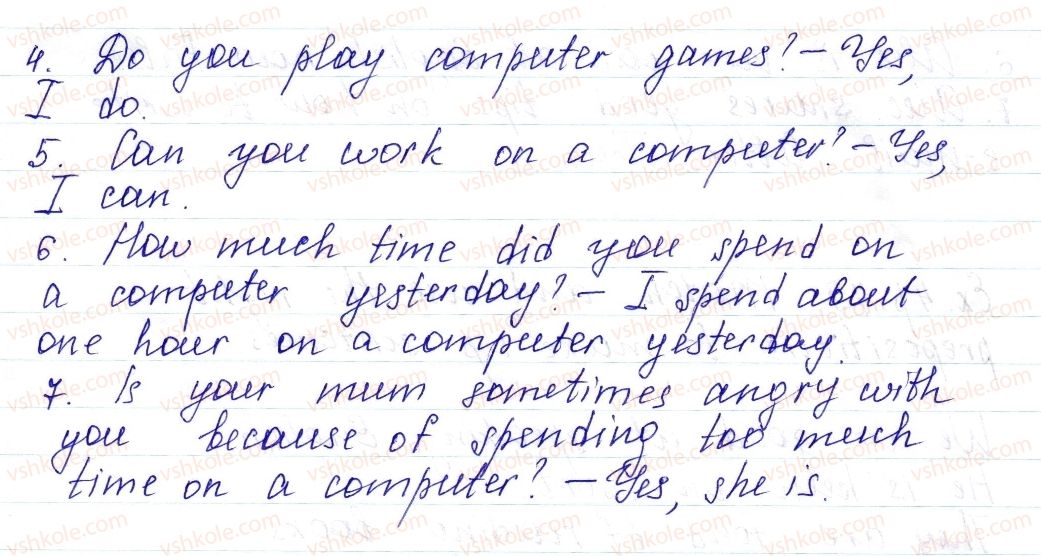 4. Do you play computer games? – Yes,
I do.
5. Can you work on a computer? – Yes,
I can.
6. How much time did you spend on
a computer yesterday? – I spend about
one hour on a computer yesterday.
7. Is your mum sometimes angry with
you because of spending too much
time on a computer? – Yes, she is.